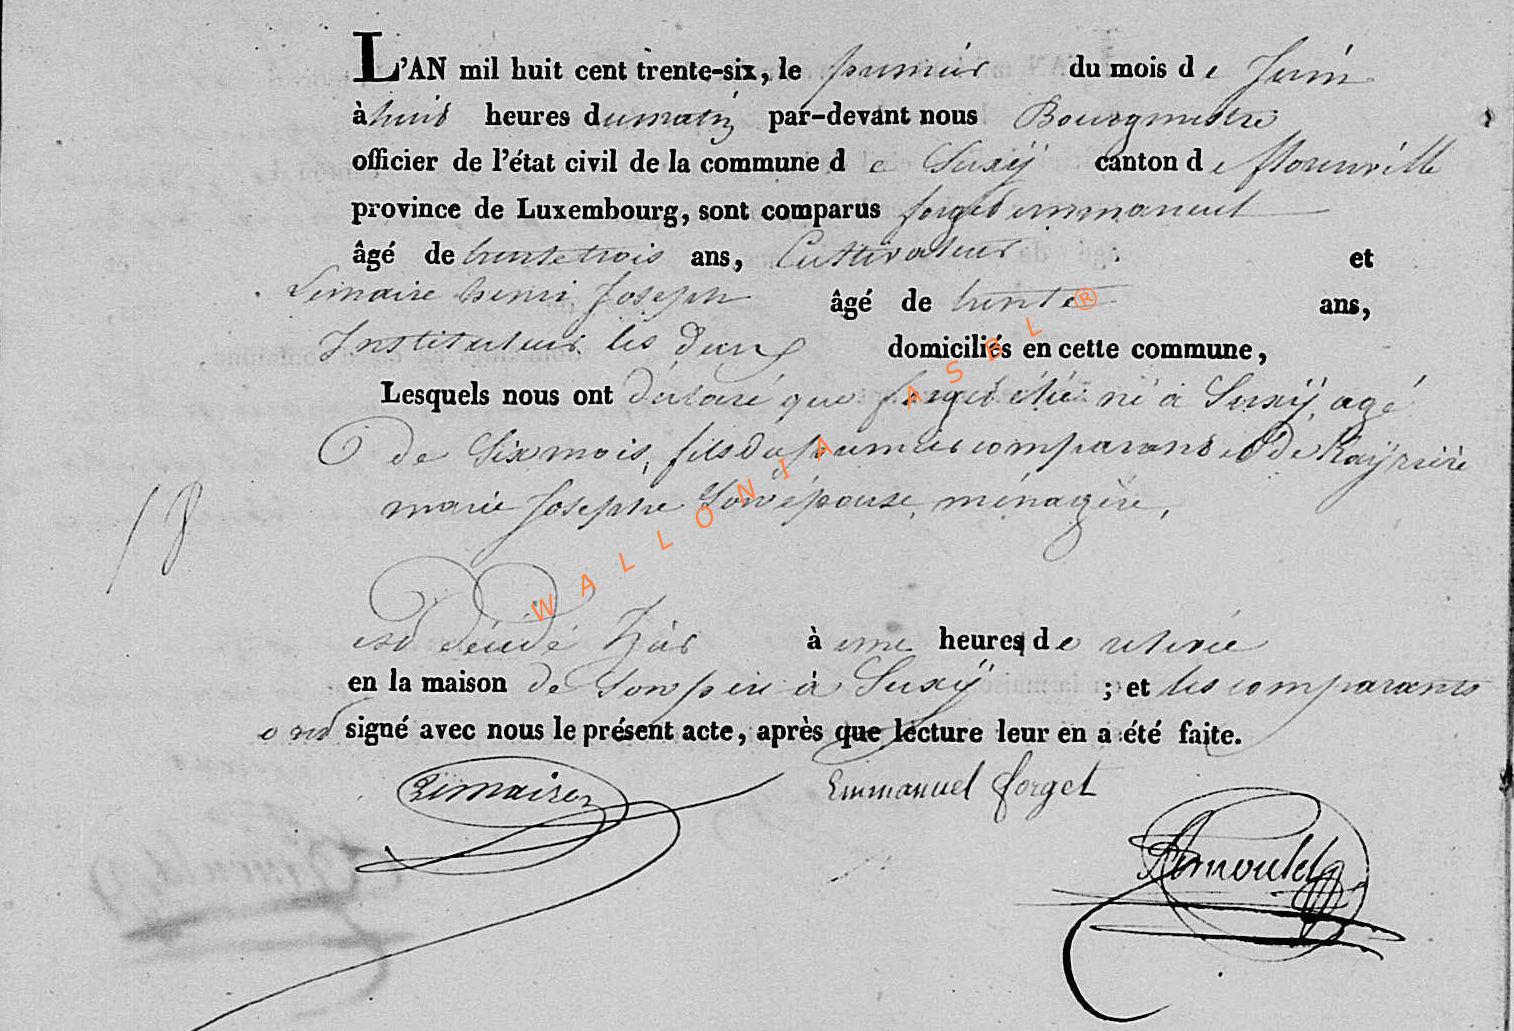 L'AN mil huit cent trente-six, le premier du mois de Juin
à huit heures du matin par-devant nous Bourgmestre
officier de l'état civil de la commune de Suxÿ canton de florenville
province de Luxembourg, sont comparus forget emmanuel
âgé de trente trois ans, Cultivateur et
Lemaire henri Joseph âgé de trente ans,
Instituteur les deux domiciliés en cette commune,
Lesquels nous ont déclaré que forget né à Suxÿ, agé
de Six mois, fils du premier comparant et de
marie Josephe Son épouse, ménagère,
18
est décédé hier à une heure de relevée
en la maison de Son père à Suxÿ ; et les comparants
ont signé avec nous le présent acte, après que lecture leur en a été faite.
Lemaire Emmanuel forget
WALLONIA ASBL ®